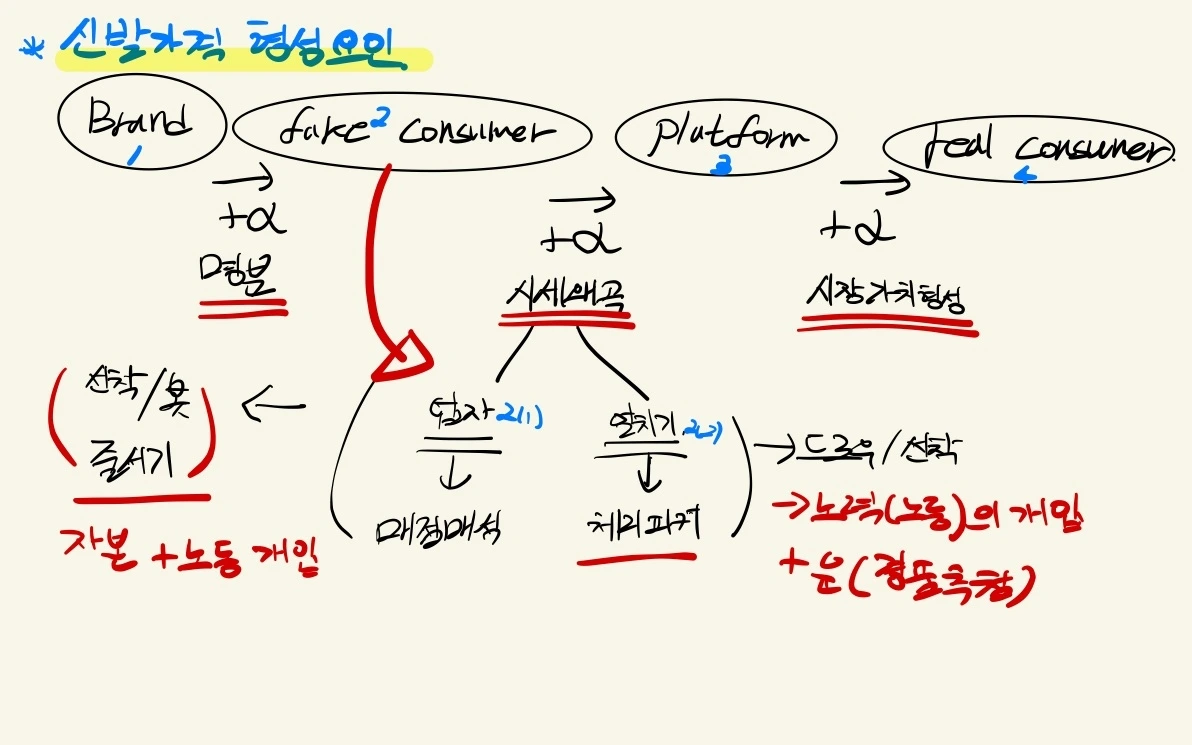 * 신발가격 형성요인
Brand 1
fake 2 consumer
platform 3
real consumer. 4
+α
명분
+α
시세왜곡
+α
시장가치형성
선착/옷
줄서기
자본 + 노동 개입
업자 2(1)
매점매석
알치기 2(2)
체리피커
드로우/선착
→ 노력(노동)의 개입
+ 운(경품추첨)